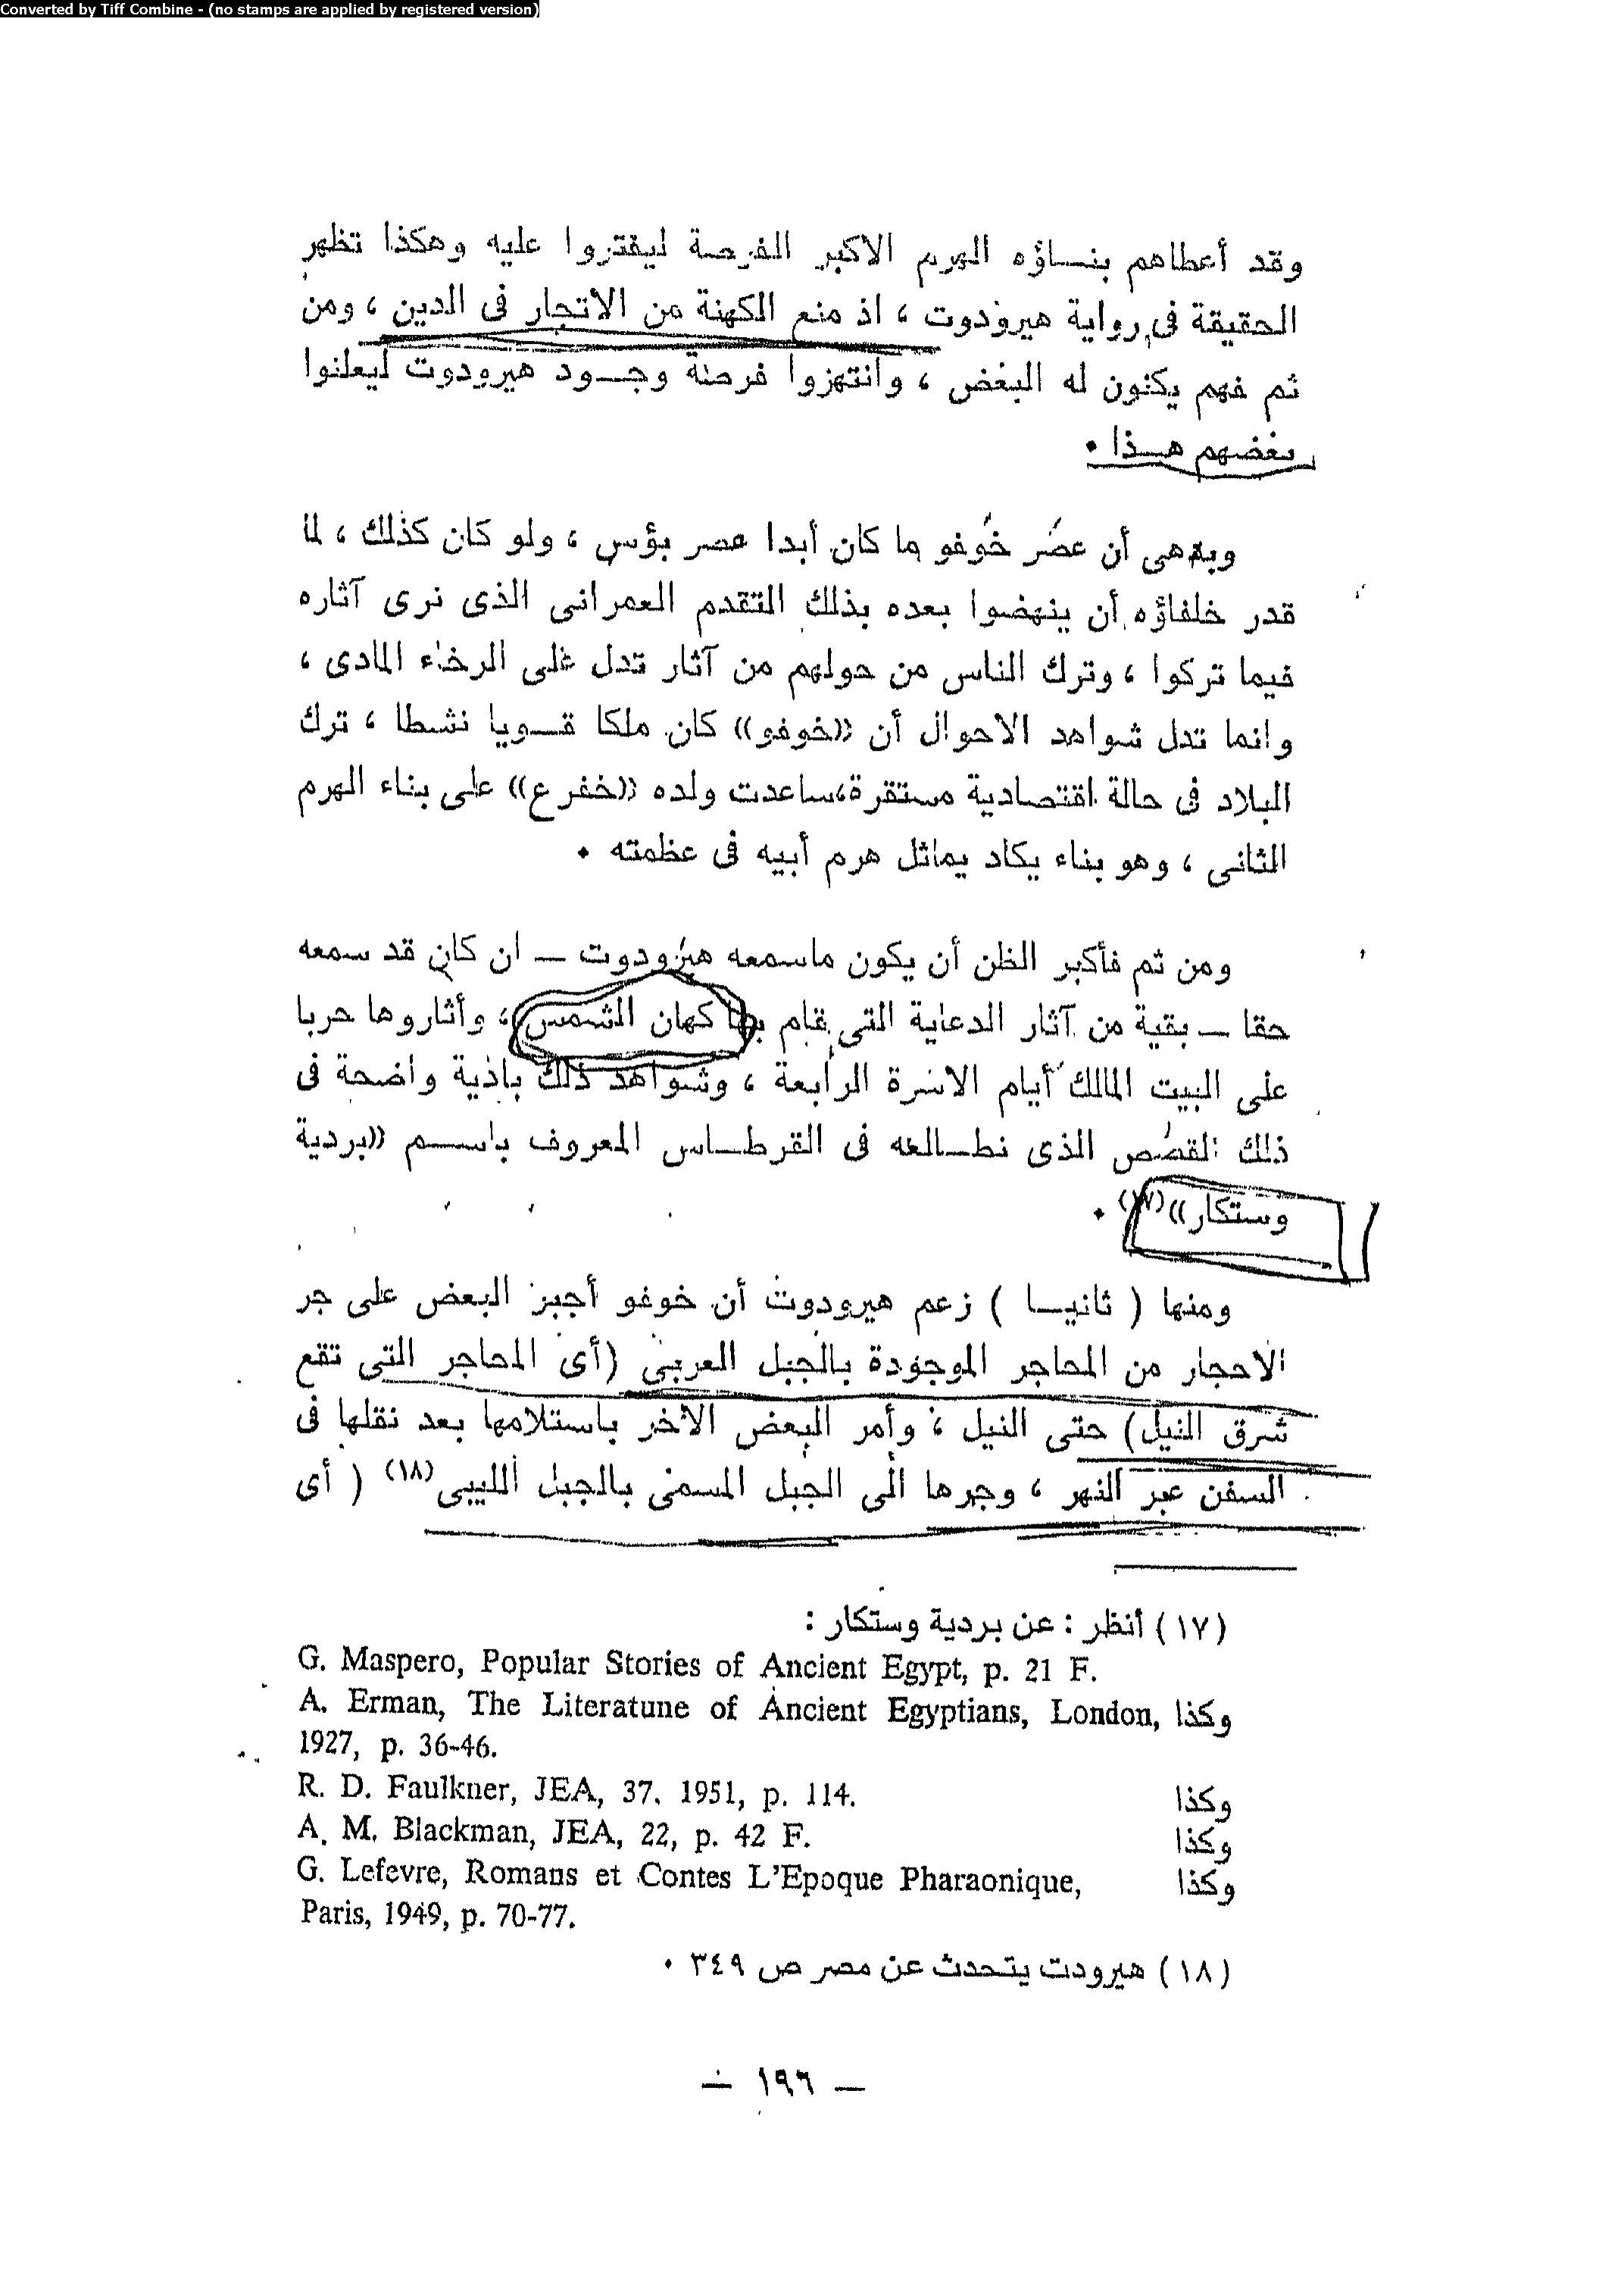 Converted by Tiff Combine - (no stamps are applied by registered version)
وقد أعطاهم بنـــاؤه الهرم الاكبر الفرصة ليفتروا عليه وهكذا تظهر
الحقيقة فى رواية هيرودوت ، اذ منع الكهنة من الاتجار فى الدين ، ومن
ثم فهم يكنون له البغض ، وانتهزوا فرصة وجــود هيرودوت ليعلنوا
بغضهم هــذا •
وبدهى أن عصر خوفو ما كان أبدا عصر بؤس ، ولو كان كذلك ، لما
قدر خلفاؤه أن ينهضوا بعده بذلك التقدم العمرانى الذى نرى آثاره
فيما تركوا ، وترك الناس من حولهم من آثار تدل على الرخاء المادى ،
وانما تدل شواهد الاحوال أن «خوفو» كان ملكا قــويا نشطا ، ترك
البلاد فى حالة اقتصادية مستقرة،ساعدت ولده «خفرع» على بناء الهرم
الثانى ، وهو بناء يكاد يماثل هرم أبيه فى عظمته •
ومن ثم فأكبر الظن أن يكون ماسمعه هيرودوت — ان كان قد سمعه
حقا — بقية من آثار الدعاية التى قام بها كهان الشمس ، وأثاروها حربا
على البيت المالك أيام الاسرة الرابعة ، وشواهد ذلك باذية واضحة فى
ذلك القصص الذى نطــالعه فى القرطــاس المعروف باســم «بردية
وستكار»(١٧) •
ومنها ( ثانيــا ) زعم هيرودوت أن خوفو أجبر البعض على جر
الاحجار من المحاجر الموجودة بالجبل العربى (أى المحاجر التى تقع
شرق النيل) حتى النيل ، وأمر البعض الآخر باستلامها بعد نقلها فى
السفن عبر النهر ، وجرها الى الجبل المسمى بالجبل الليبى(١٨) ( أى
(١٧) أنظر : عن بردية وستكار :
G. Maspero, Popular Stories of Ancient Egypt, p. 21 F.
A. Erman, The Literatune of Ancient Egyptians, London, وكذا
1927, p. 36-46.
R. D. Faulkner, JEA, 37. 1951, p. 114. وكذا
A. M. Blackman, JEA, 22, p. 42 F. وكذا
G. Lefevre, Romans et Contes L'Epoque Pharaonique, وكذا
Paris, 1949, p. 70-77.
(١٨) هيرودت يتحدث عن مصر ص ٣٤٩ •
— ١٩٦ —